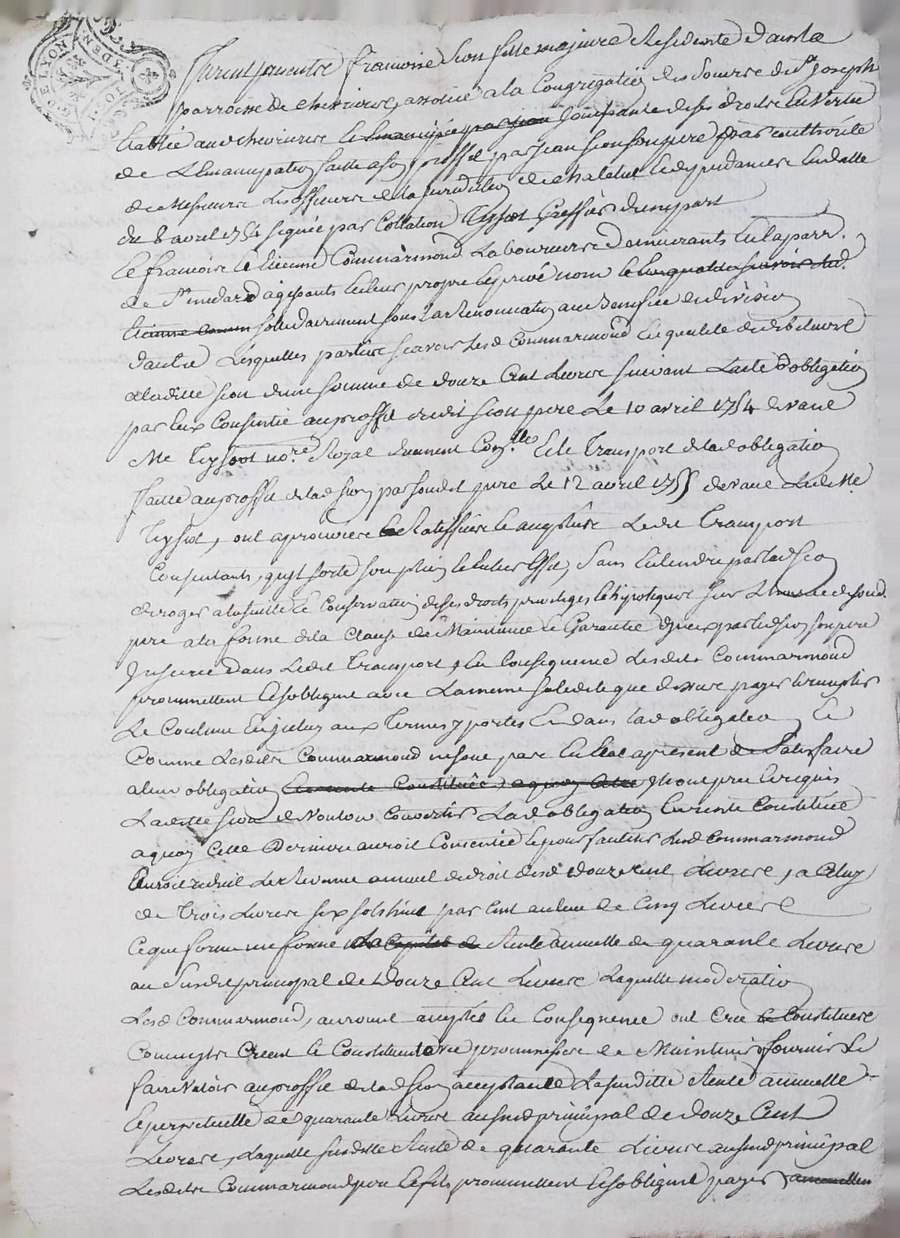 DE LYON
furent presents françoise sion fille majeure Residente dans la
parroisse de chevrieres, associée a la Congregation des soeurs de St Joseph
Etablie audit chevrieres jouissante de ses droits En Vertu
de L'Emancipation faitte a son proffit par Jean sion son pere par authorité
de Messieurs Les officiers de la jurisdiction de chatelus et dependances En datte
du 8 avril signée par Collation Teyssot Greffier d'une part
Et françois Et Etienne Commarmond Laboureurs demeurants En la parr.
de St medard agissants En leur propre Et privé nom
solidairement sous La Renonciation aux Benefice de division
d'autre Lesquelles parties sçavoir Lesd. Commarmond En qualité de debiteurs
a laditte sion d'une somme de douze Cent Livres suivant L'acte d'obligation
par Eux Consentie au proffit dudit sion pere Le 10 avril 1754 devant
Me Teyssot nore Royal Et Le Transport de lad obligation
faitte au proffit de lad sion par sondit pere Le 12 avril 1755 devant Ledit Me
Teyssot, ont approuvé Ratiffié et accepté Ledit Transport
Consentants, qu'il sorte son plein et Entier Effet, sans Entendre par lad sion
deroger a la suitte Et Conservation de ses droits privileges et hipoteques sur de sond.
pere a la forme de la Clause de Maintenue Et Garantie par led sion son pere
Inserée dans Ledit Transport, En Consequence Lesdits Commarmond
promettent Et s'obligent avec La meme solidité que dessus payer
Le Contenu aux Termes y portés dans lad obligation Et
Comme Lesdits Commarmond ne sont pas En Etat a present de satisfaire
a leur obligation Ils ont prié Et requis
Laditte sion de Vouloir Convertir Lad obligation En rente Constituée
a quoy Cette Derniere auroit Consentie Et pour faciliter Lesd Commarmond
auroit reduit Le Revenu annuel de droit desd douze Cent Livres, a Celuy
de Trois Livres six sols huit par Cent au lieu de Cinq Livres
Ce qui forme une Rente annuelle de quarante Livres
au susdit principal de Douze Cent Livres Laquelle moderation
Lesd Commarmond, auroient accepté En Consequence ont Créé Constitué
Comme ils Créent Et Constituent avec promesse de Maintenir fournir Et
faire Valoir au proffit de lad sion acceptante La susditte Rente annuelle
Et perpetuelle de quarante Livres au susd principal de Douze Cent
Livres, Laquelle susditte Rente de quarante Livres au susd principal
Lesdits Commarmond promettent Et s'obligent payer